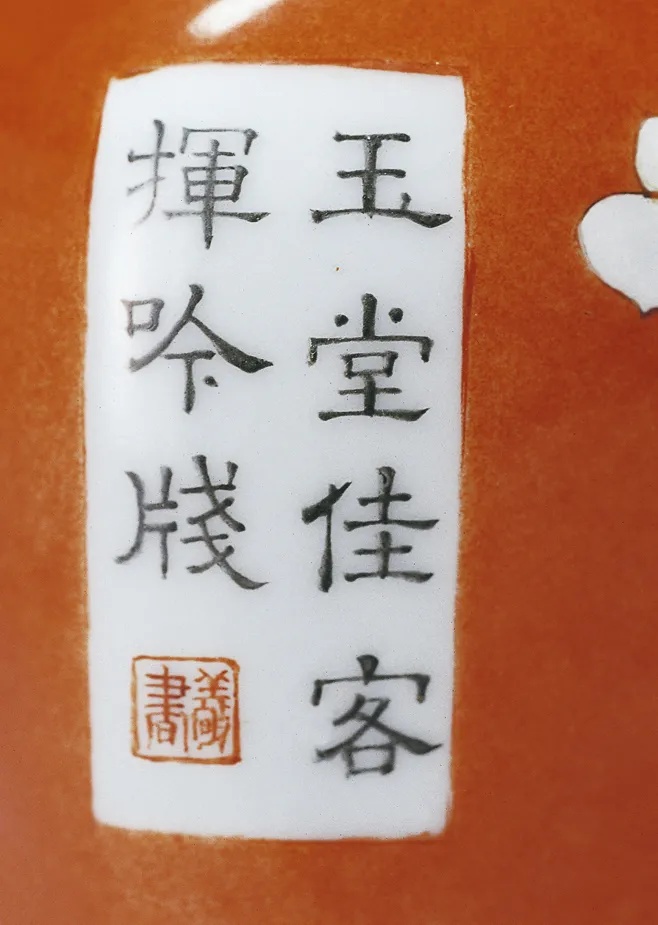 玉堂佳客
揮吟牋
書